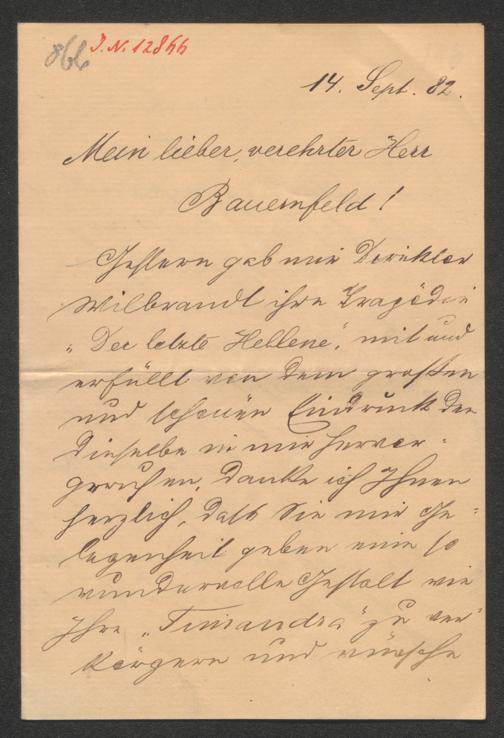 866 J.N. 12866
14. Sept. 82.
Mein lieber, verehrter Herr
Bauernfeld!
Gestern gab mir Direktor
Wilbrandt ihre Tragödie
„Der letzte Hellene", mit und
erfüllt von dem großen
und schönen Eindruck den
dieselbe in mir hervor-
gerufen, danke ich Ihnen
herzlich, daß Sie mir Ge-
legenheit geben eine so
wundervolle Gestalt wie
Ihre „Timandra" zu ver-
körpern und wünsche